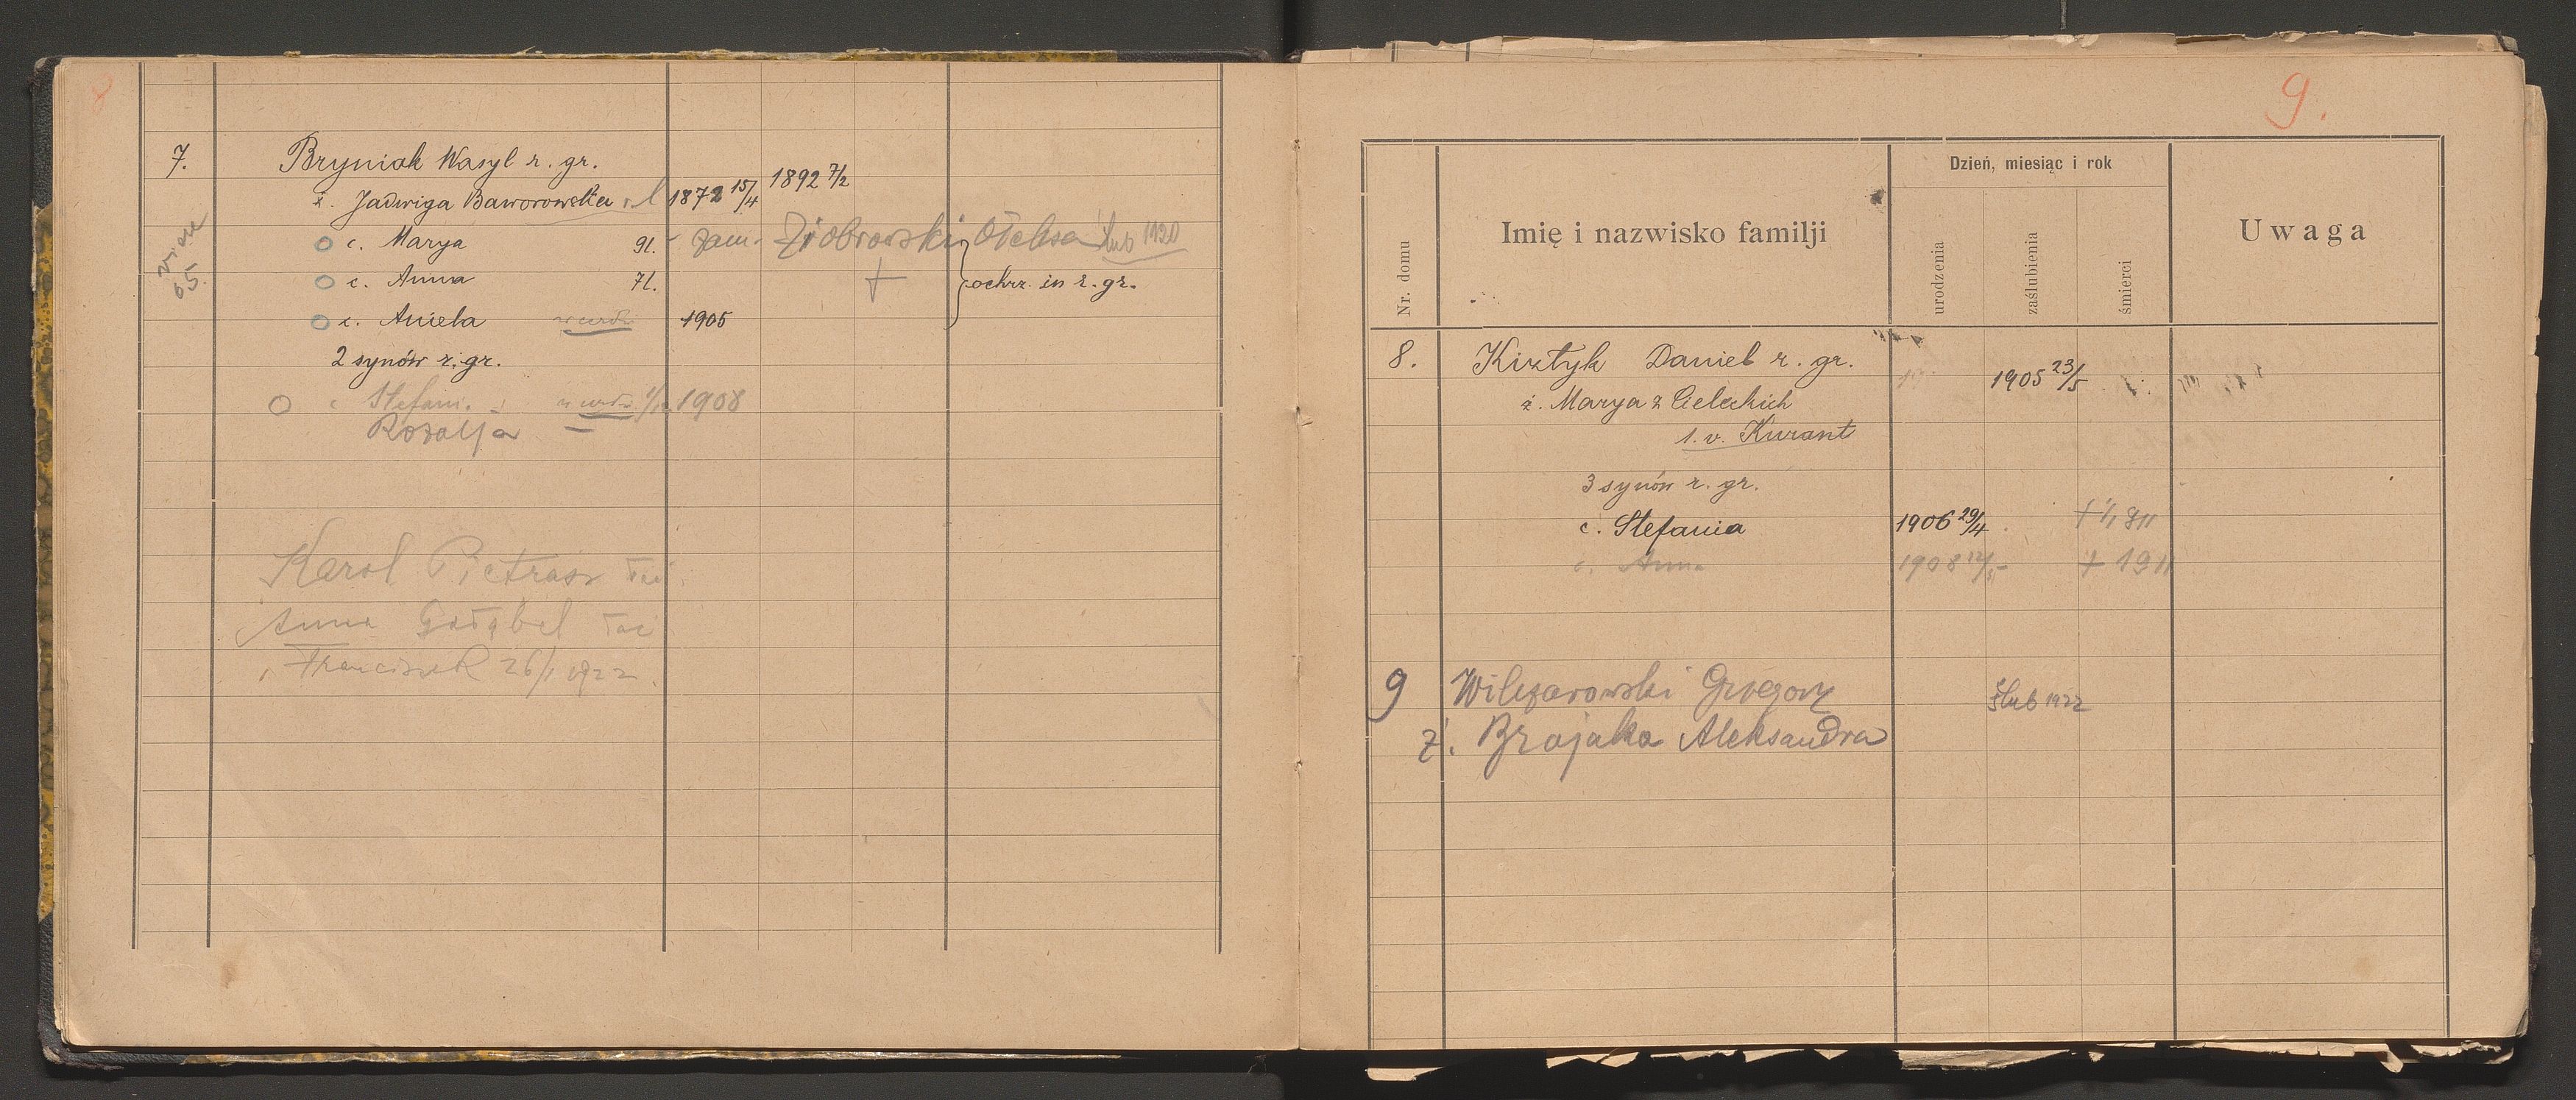 8
7.
Bryniak Wasyl r. gr.
ż. Jadwiga Baworowska r. l
1872 15/4
1892 7/2
c. Marya 9l. zam. Ziobrowski Ołeksa ślub 1920
c. Anna 7l. + ochrz. in r. gr.
vide
65.
c. Aniela 1905
2 synów r. gr.
c. Stefani 1908
Rozalja
Karol Pietrasz łać
Anna Gołąbel łać
Franciszek 26/1 1922
9.
Nr. domu
Imię i nazwisko familji
Dzień, miesiąc i rok
urodzenia
zaślubienia
śmierci
Uwaga
8. Kisztyk Daniel r. gr.
1905 23/5
ż. Marya z Cieleckich
1. v. Kurant
3 synów r. gr.
c. Stefania 1906 29/4 +
c. Anna 1908 + 1911
9 Wilczarowski Gregory
ślub 1922
ż. Brojaka Aleksandra